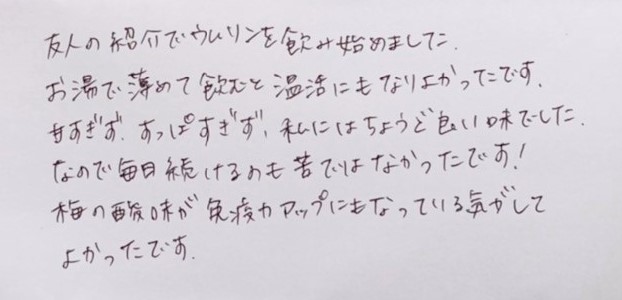 友人の紹介でウムリンを飲み始めました.
お湯で薄めて飲むと温活にもなりよかったです.
甘すぎず.すっぱすぎず,私にはちょうど良い味でした.
なので毎日続けるのも苦ではなかったです!
梅の酸味が免疫力アップにもなっている気がして
よかったです.